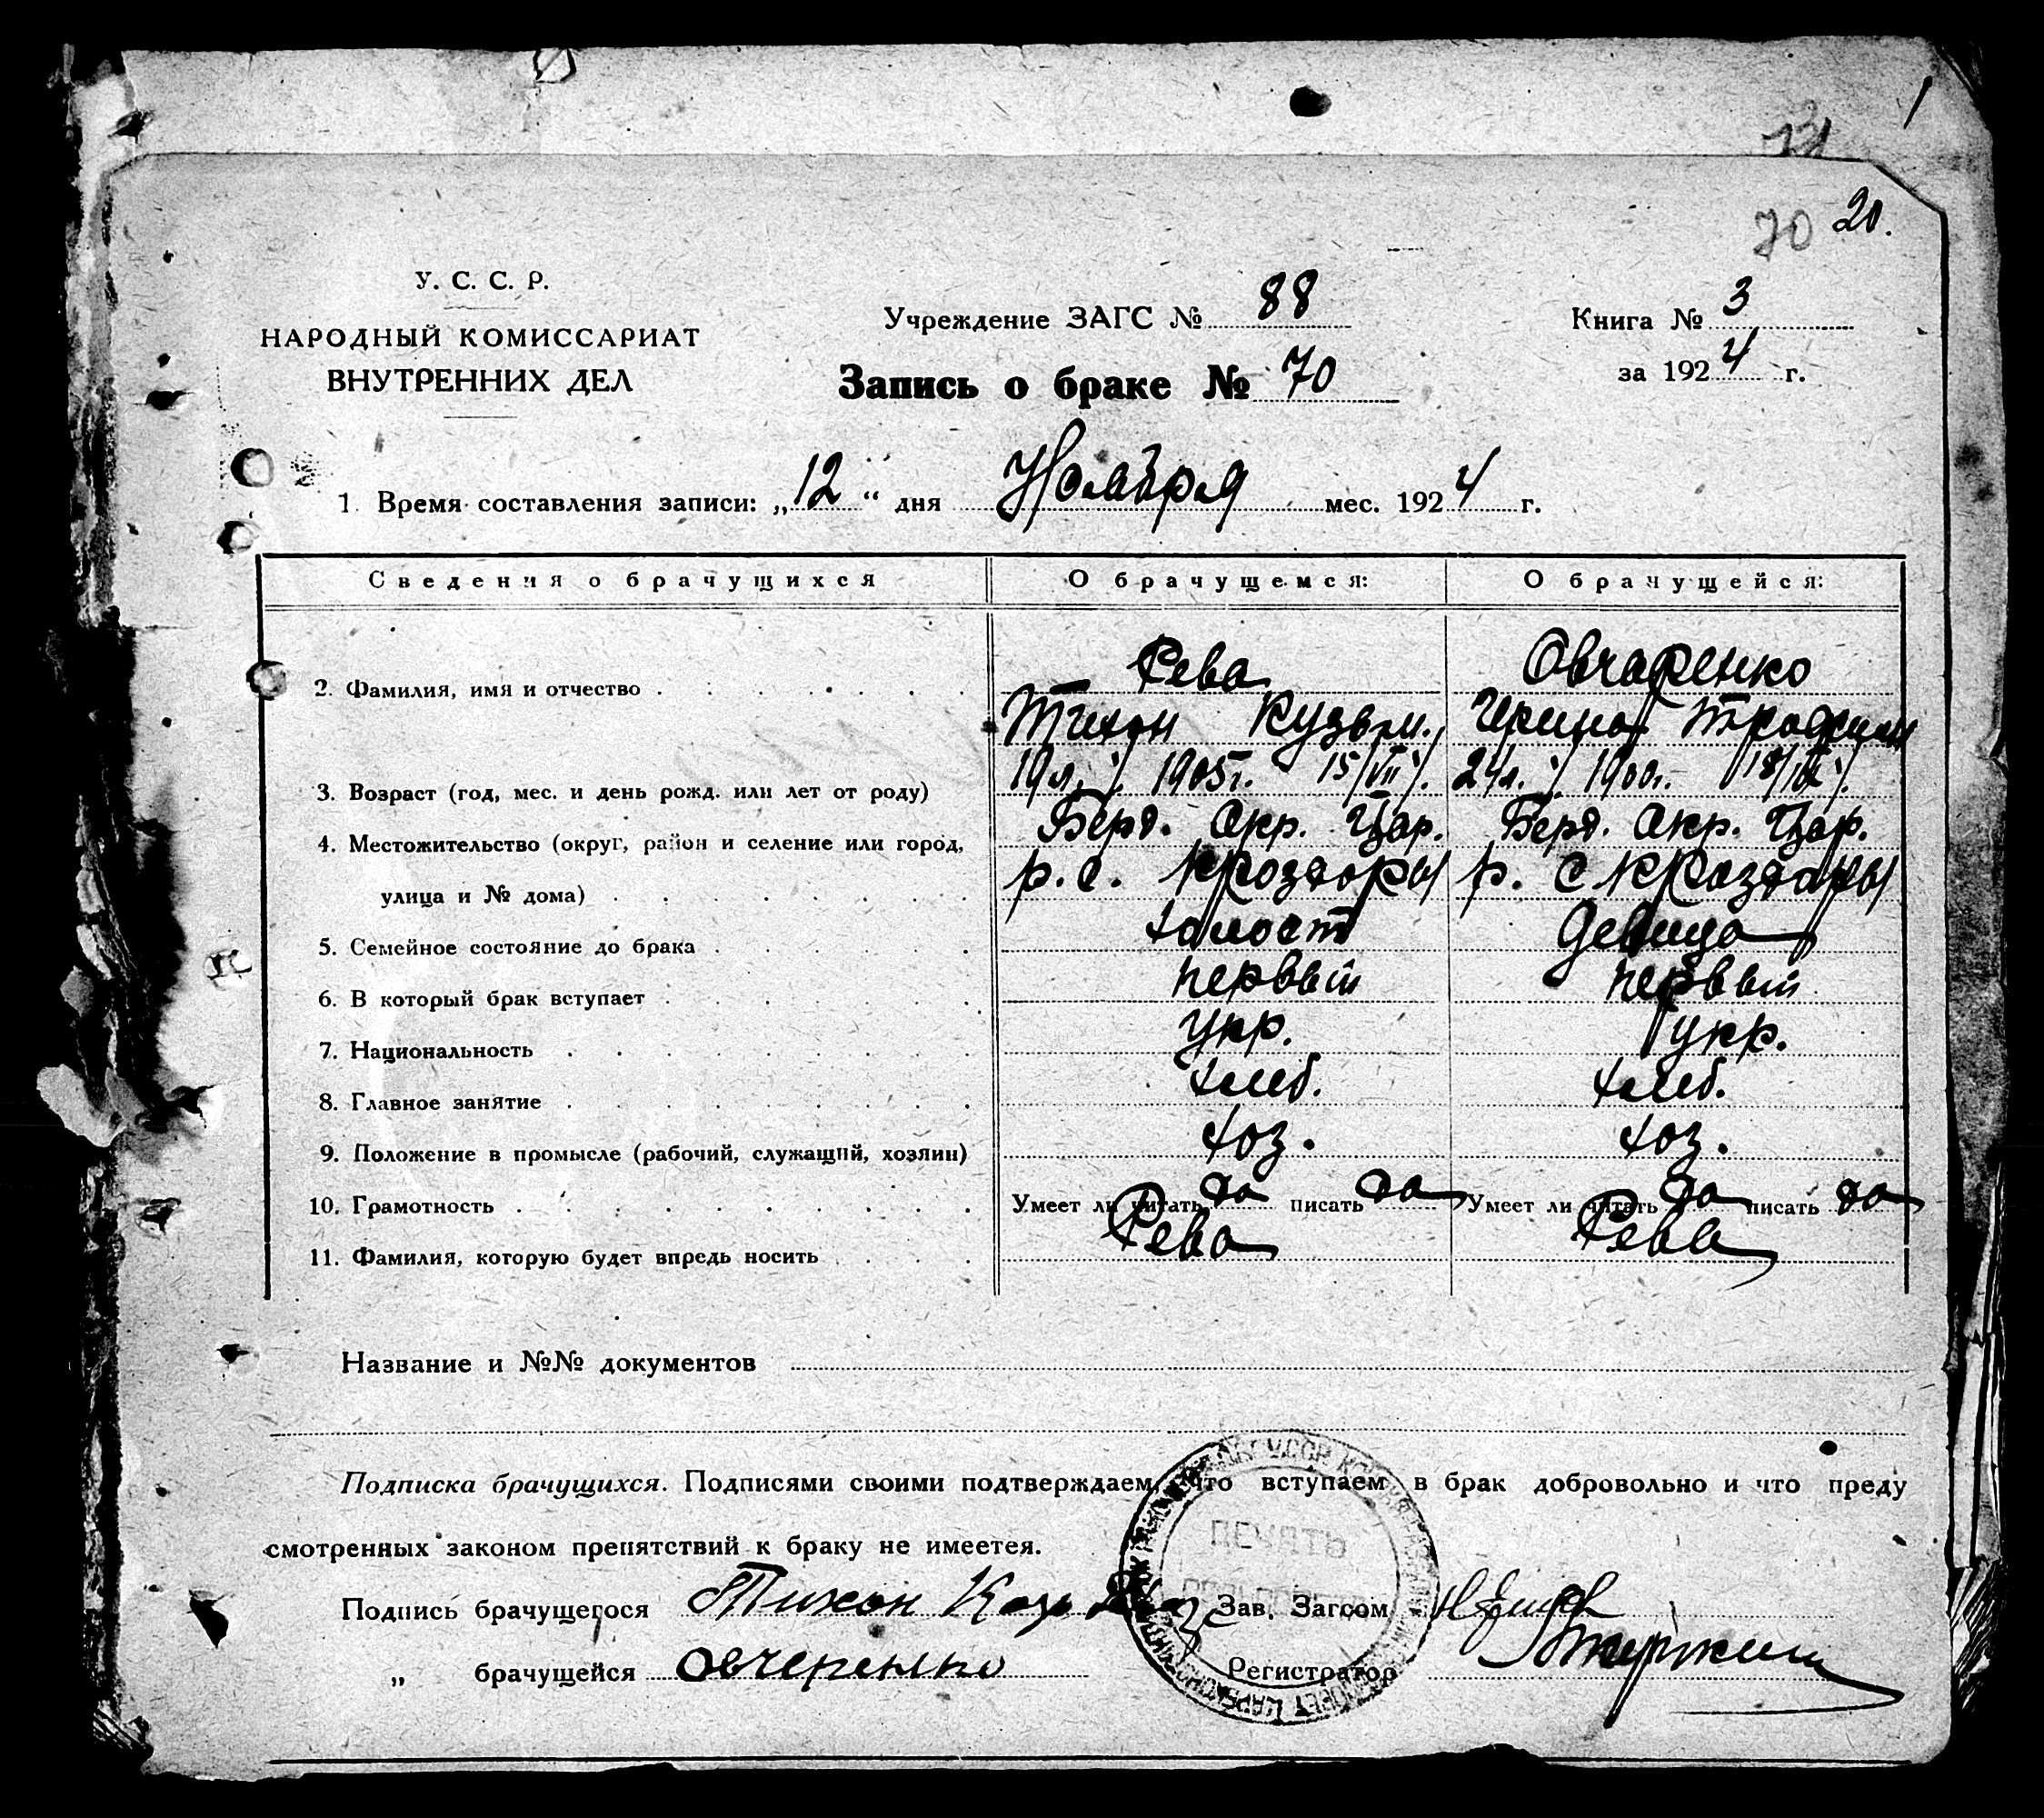 1
70 20.
У. С. С. Р.
НАРОДНЫЙ КОМИССАРИАТ
ВНУТРЕННИХ ДЕЛ
Учреждение ЗАГС № 88
Запись о браке № 70
Книга № 3
за 1924 г.
1. Время составления записи: „12“ дня Ноября мес. 1924 г.
Сведения о брачущихся О брачущемся: О брачущейся:
2. Фамилия, имя и отчество Рева Овчаренко
Тихон Кузьм. Ирина
3. Возраст (год, мес. и день рожд. или лет от роду) 19 л. 1905 г. 15/VII 24 л. 1900 г.
4. Местожительство (округ, район и селение или город, Берд. Окр. Цар. Берд. Окр. Цар.
улица и № дома) р. с. р. с
5. Семейное состояние до брака холост девица
6. В который брак вступает первый первый
7. Национальность Укр. укр.
8. Главное занятие хлеб. хлеб.
9. Положение в промысле (рабочий, служащий, хозяин) хоз. хоз.
10. Грамотность Умеет ли читать да писать да Умеет ли читать да писать да
11. Фамилия, которую будет впредь носить Рева Рева
Название и №№ документов
Подписка брачущихся. Подписями своими подтверждаем, что вступаем в брак добровольно и что преду
смотренных законом препятствий к браку не имеетея.
Подпись брачущегося Тихон Зав. Загсом
„ брачущейся Овчеренко Регистратор
ПЕЧАТЬ